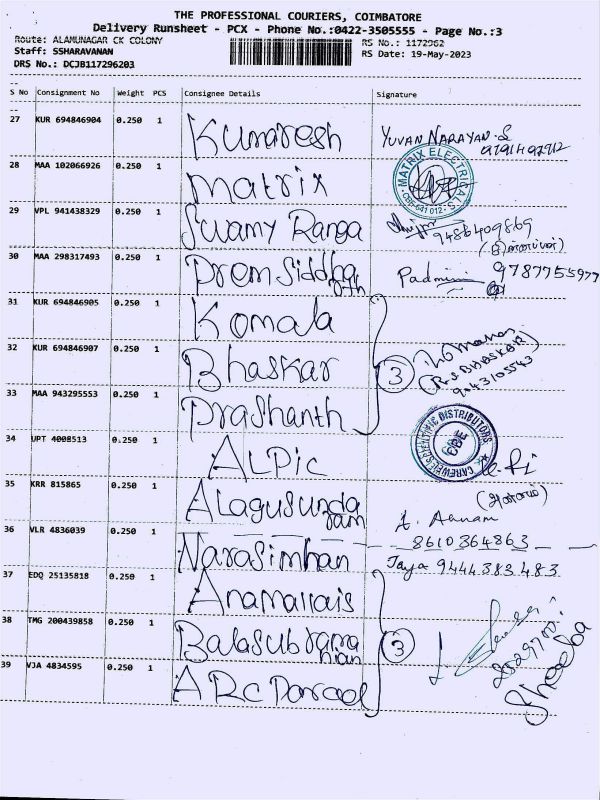 THE PROFESSIONAL COURIERS, COIMBATORE
Delivery Runsheet - PCX - Phone No.:0422-3505555 - Page No.:3
Route: ALAMUNAGAR CK COLONY
RS No.: 1172962
Staff: SSHARAVANAN
RS Date: 19-May-2023
DRS No.: DCJB117296203
S No Consignment No Weight PCS Consignee Details Signature
27 KUR 694846904 0.250 1 Kumaresh YUVAN NARAYAN.S
9791497712
28 MAA 102066926 0.250 1 Matrix
MATRIX ELECTRICALS
CBE-641 012
29 VPL 941438329 0.250 1 Swamy Ranga
9486409869
30 MAA 298317493 0.250 1 Prem Siddha Padmini 9787755977
31 KUR 694846905 0.250 1 Komala
32 KUR 694846907 0.250 1 Bhaskar 3
(R.S BHASKAR)
9043105543
33 MAA 943295553 0.250 1 Prashanth
34 UPT 4008513 0.250 1 ALPic
SCIENTIFIC DISTRIBUTORS
CBE
35 KRR 815865 0.250 1 Alagusunda
ram
8610364863
36 VLR 4836039 0.250 1 Narasimhan
Jaya 9444383483
37 EDQ 25135818 0.250 1 Anamallais
38 TMG 200439858 0.250 1 Balasubrama
nian
3
Sheeba
39 VJA 4834595 0.250 1 ARC Parcel